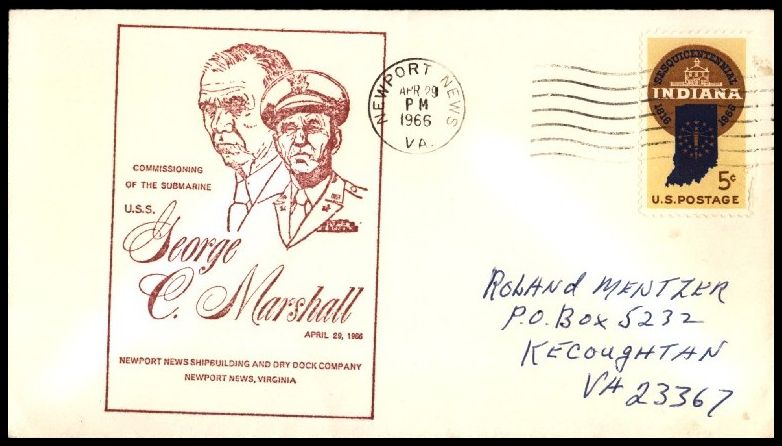 COMMISSIONING
OF THE SUBMARINE
U.S.S.
George
C. Marshall
APRIL 29, 1966
NEWPORT NEWS SHIPBUILDING AND DRY DOCK COMPANY
NEWPORT NEWS, VIRGINIA
NEWPORT NEWS
APR 29
PM
1966
VA.
SESQUICENTENNIAL
INDIANA
1816 1966
5¢
U.S. POSTAGE
ROLAND MENTZER
P.O. BOX 5232
KECOUGHTAN
VA 23367